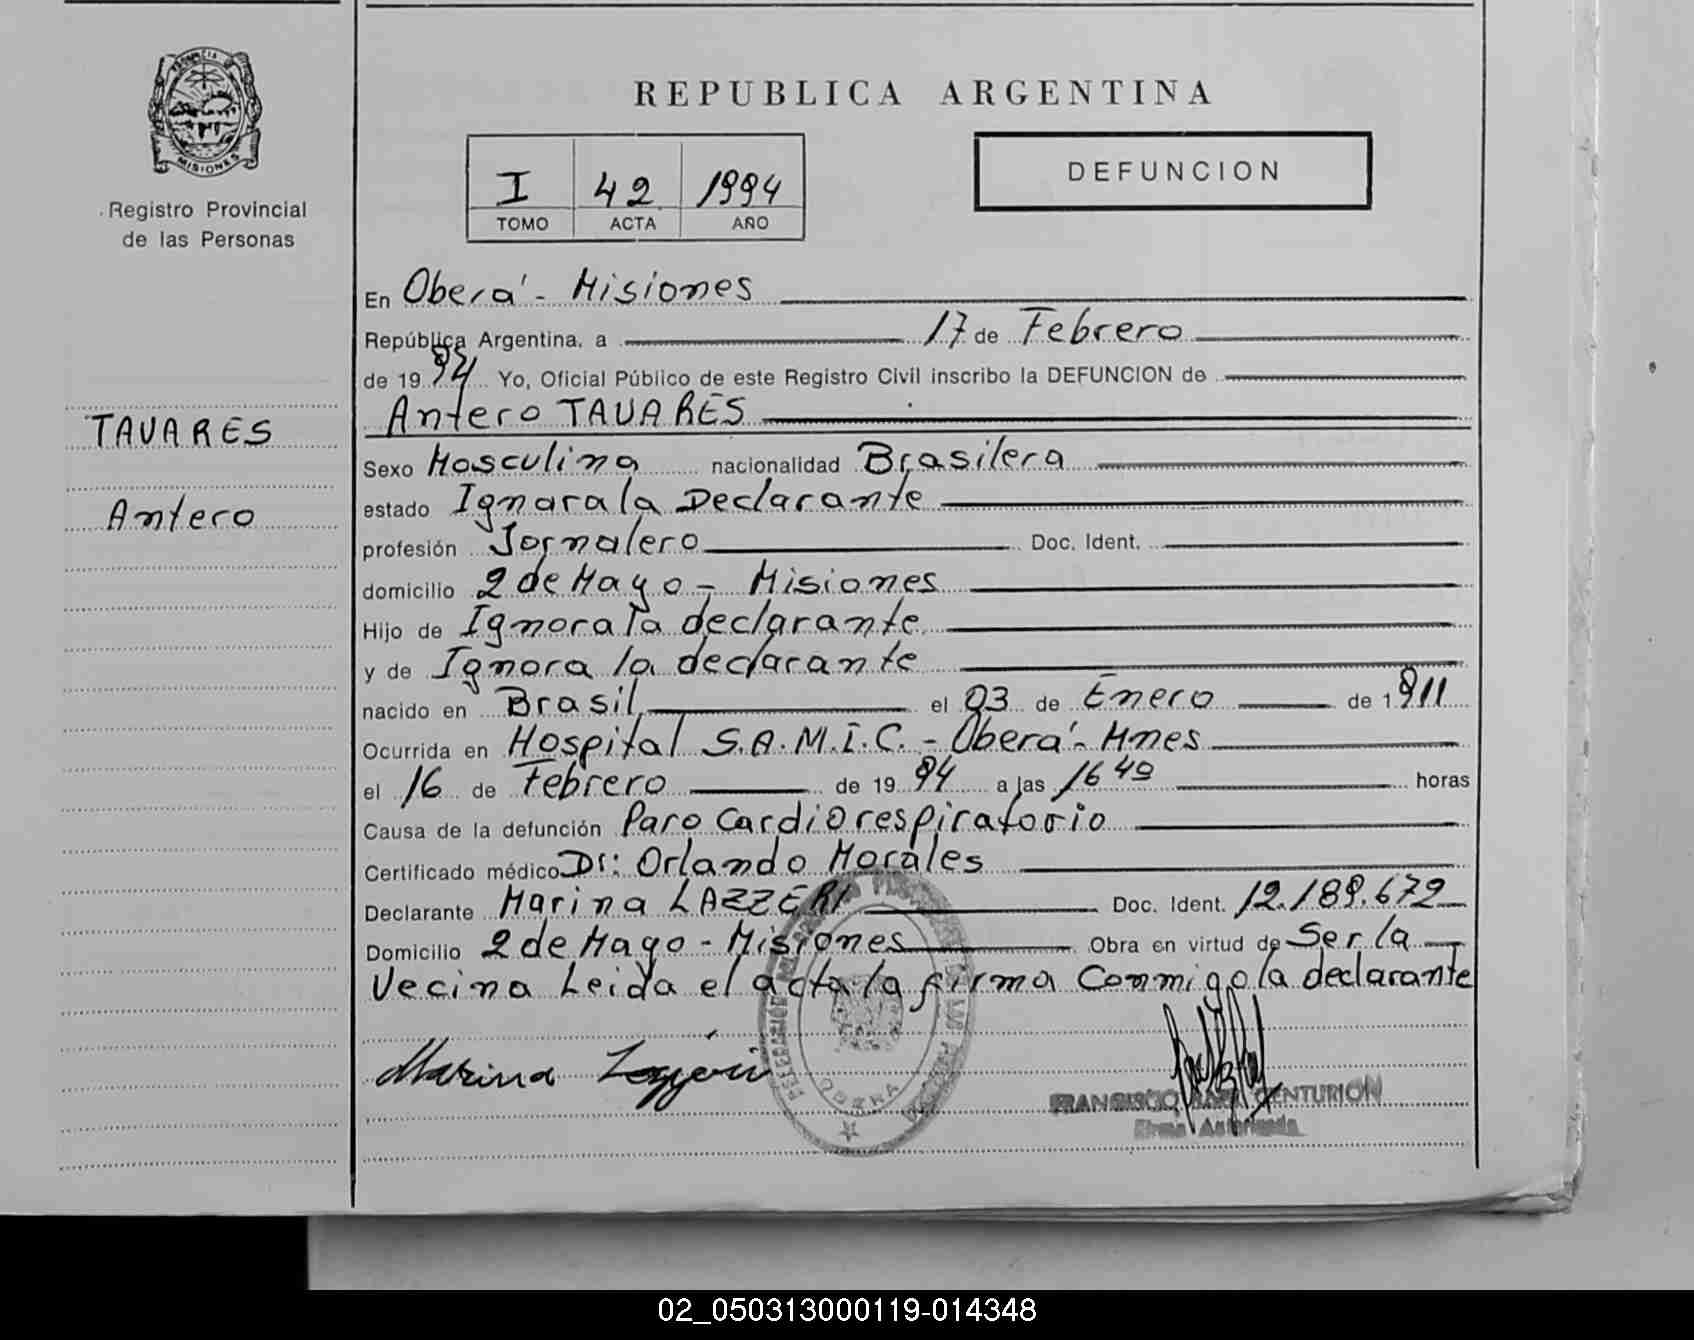 PROVINCIA D
MISIONES
Registro Provincial
de las Personas
TAVARES
Antero
REPUBLICA ARGENTINA
I 42 1994
TOMO ACTA AÑO
DEFUNCION
En Oberá - Misiones
República Argentina, a 17 de Febrero
de 1994 Yo, Oficial Público de este Registro Civil inscribo la DEFUNCION de
Antero TAVARES
Sexo Masculina nacionalidad Brasilera
estado Ignora la Declarante
profesión Jornalero Doc. Ident.
domicilio 2 de Mayo - Misiones
Hijo de Ignora la declarante
y de Ignora la declarante
nacido en Brasil el 03 de Enero de 1911
Ocurrida en Hospital S.A.M.I.C. - Oberá - Mnes
el 16 de Febrero de 1994 a las 16 40 horas
Causa de la defunción Paro Cardiorespiratorio
Certificado médico Dr: Orlando Morales
Declarante Marina LAZZERI Doc. Ident. 12.189.672
Domicilio 2 de Mayo - Misiones Obra en virtud de Ser la
Vecina Leida el acta la firma Conmigo la declarante
Marina Lazzeri
FRANCISCO CENTURION
Firma Autorizada
02_050313000119-014348